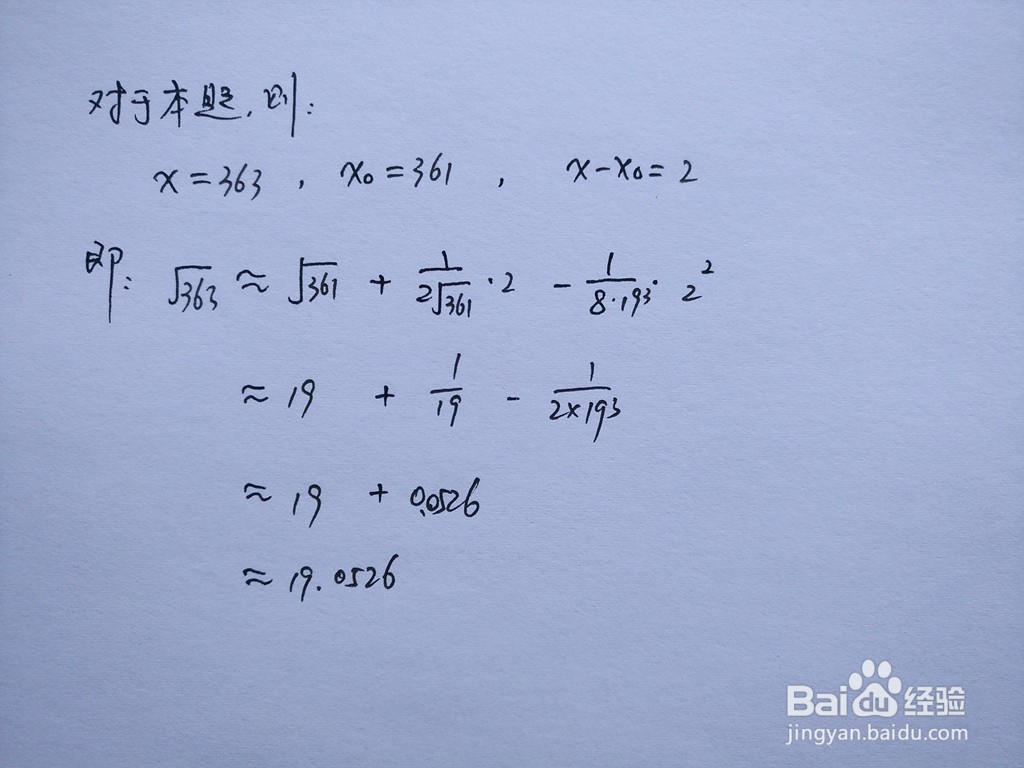 对于本题,则:
x=363, x₀=361, x-x₀=2
即: √363 ≈ √361 + 1/(2√361)·2 - 1/(8·19³)·2²
≈ 19 + 1/19 - 1/(2×19³)
≈ 19 + 0.0526
≈ 19.0526
Bai du 经验
jingyan.baidu.com